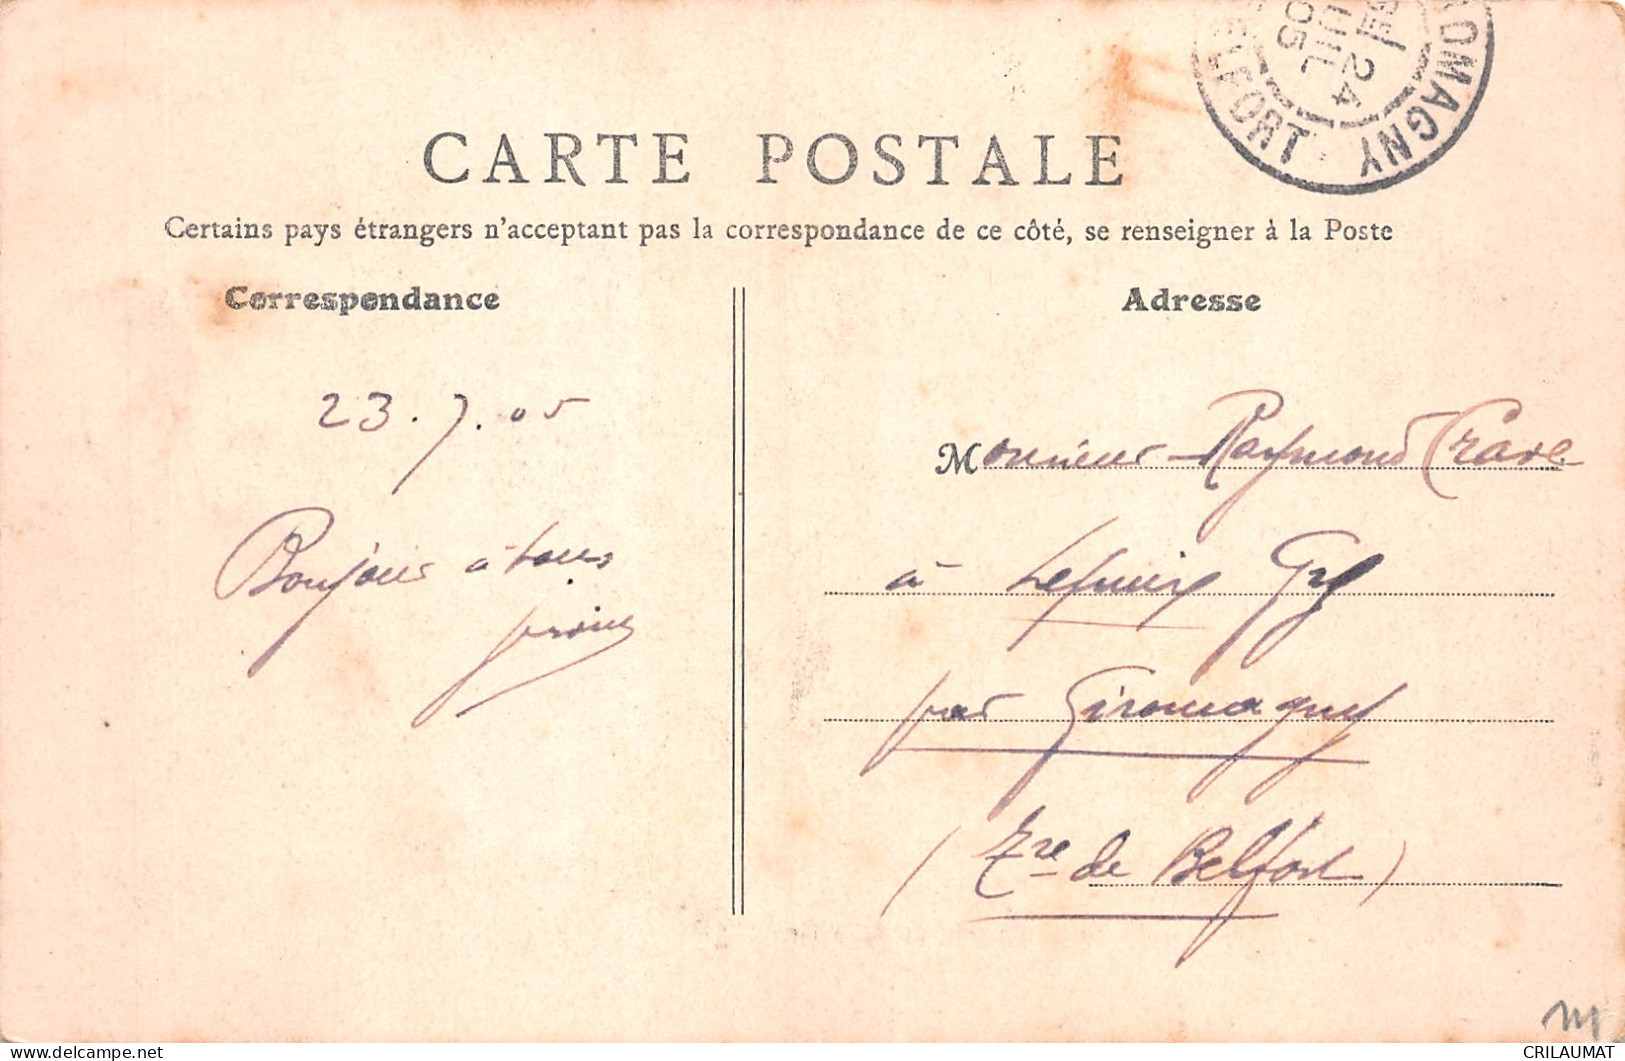 ROMAGNY
BELFORT
24
JUIL
05
CARTE POSTALE
Certains pays étrangers n'acceptant pas la correspondance de ce côté, se renseigner à la Poste
Correspondance
Adresse
23.7.05
Bonjour à tous
Monsieur Raymond Crave
à Lepuix Gy
par Giromagny
(Tre de Belfort)
M
CRILAUMAT